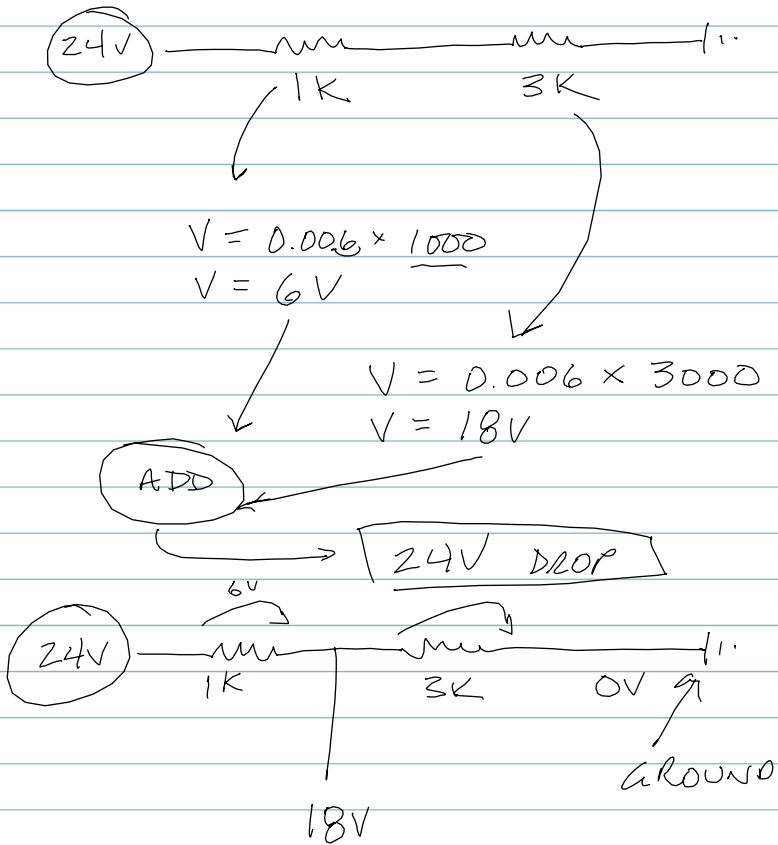 24V
1K 3K
V = 0.006 × 1000
V = 6V
V = 0.006 × 3000
V = 18V
ADD
24V DROP
6V
24V
1K 3K 0V
GROUND
18V